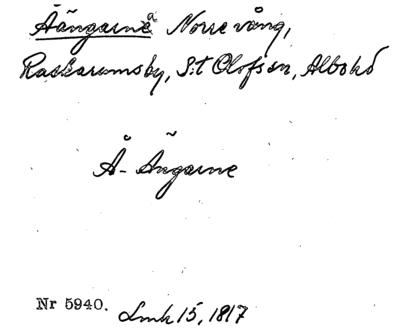 Åängarne å Norrevång,
Raskarumsby, S:t Olofs sn, Albo hd
Å- Ängarne
Nr 5940. Lmk 15, 1817